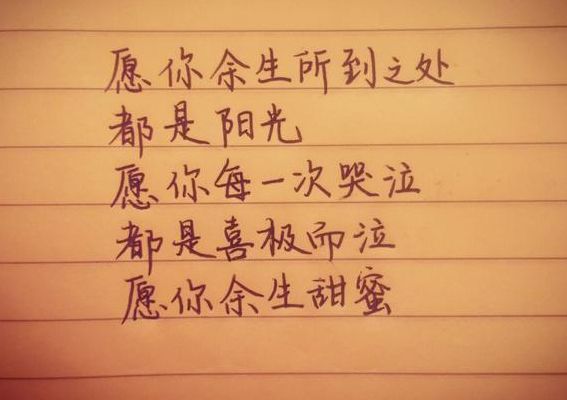 愿你余生所到之处
都是阳光
愿你每一次哭泣
都是喜极而泣
愿你余生甜蜜